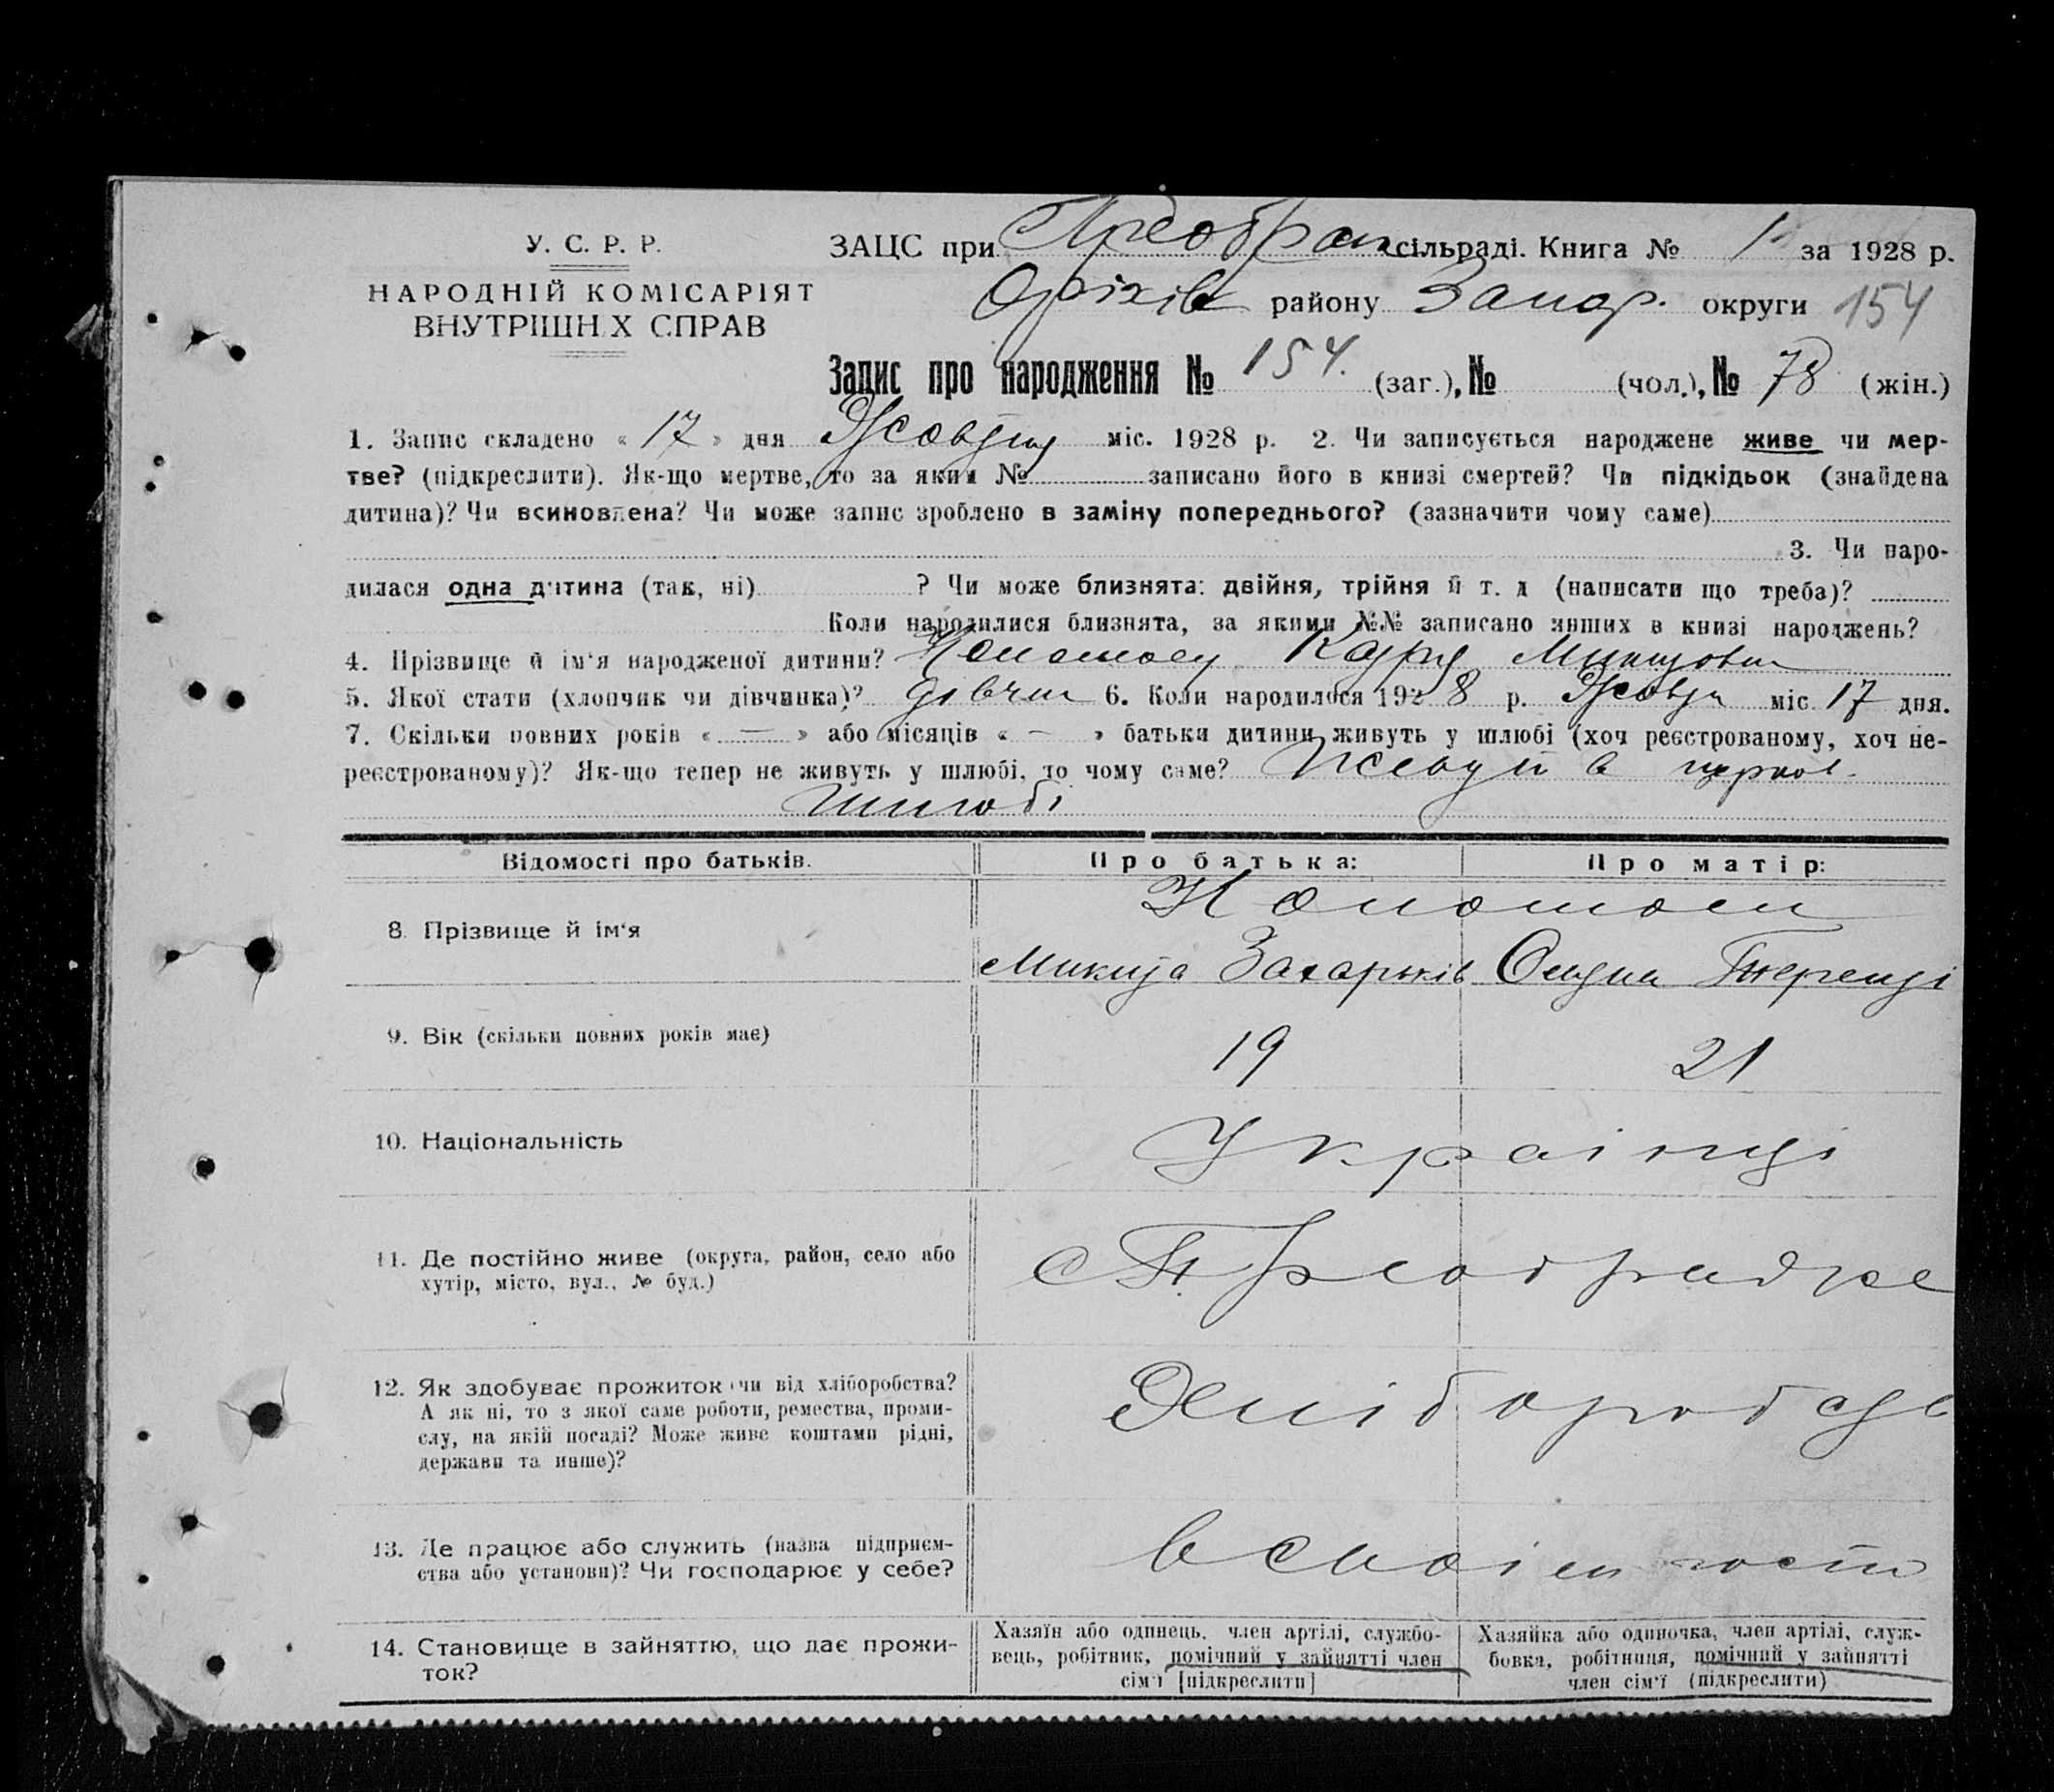 У. С. Р. Р.
НАРОДНІЙ КОМІСАРІЯТ
ВНУТРІШН.Х СПРАВ
ЗАЦС при Преобран сільраді. Книга № 1 за 1928 р.
Оріхів району Запор. округи 154
Запис про народження № 154. (заг.), № (чол.), № 78 (жін.)
1. Запис складено « 17 » дня Жовтня міс. 1928 р. 2. Чи записується народжене живе чи мер-
тве? (підкреслити). Як-що мертве, то за яким № записано його в книзі смертей? Чи підкідьок (знайдена
дитина)? Чи всиновлена? Чи може запис зроблено в заміну попереднього? (зазначити чому саме)
3. Чи наро-
дилася одна дитина (так, ні) ? Чи може близнята: двійня, трійня й т. д (написати що треба)?
Коли народилися близнята, за якими №№ записано инших в книзі народжень?
4. Прізвище й ім'я народженої дитини?
5. Якої стати (хлопчик чи дівчинка)? дівчин 6. Коли народилося 1928 р. Жовтн міс 17 дня.
7. Скільки повних років « — » або місяців « — » батьки дитини живуть у шлюбі (хоч реєстрованому, хоч не-
реєстрованому)? Як-що тепер не живуть у шлюбі, то чому саме? в церков.
шлюбі
Відомості про батьків. Про батька: Про матір:
8. Прізвище й ім'я
Микита Захарьків
9. Вік (скільки повних років має) 19 21
10. Національність Украінці
11. Де постійно живе (округа, район, село або
хутір, місто, вул., № буд.)
с
12. Як здобуває прожиток чи від хліборобства?
А як ні, то з якої саме роботи, ремества, проми-
слу, на якій посаді? Може живе коштами рідні,
держави та инше)?
Хліборобст
13. Де працює або служить (назва підприєм-
ства або установи)? Чи господарює у себе?
в своім госп
14. Становище в зайняттю, що дає прожи-
ток?
Хазяїн або одинець, член артілі, службо-
вець, робітник, помічний у зайнятті член
сім'ї [підкреслити]
Хазяйка або одиночка, член артілі, служ-
бовка, робітниця, помічний у зайнятті
член сім'ї (підкреслити)